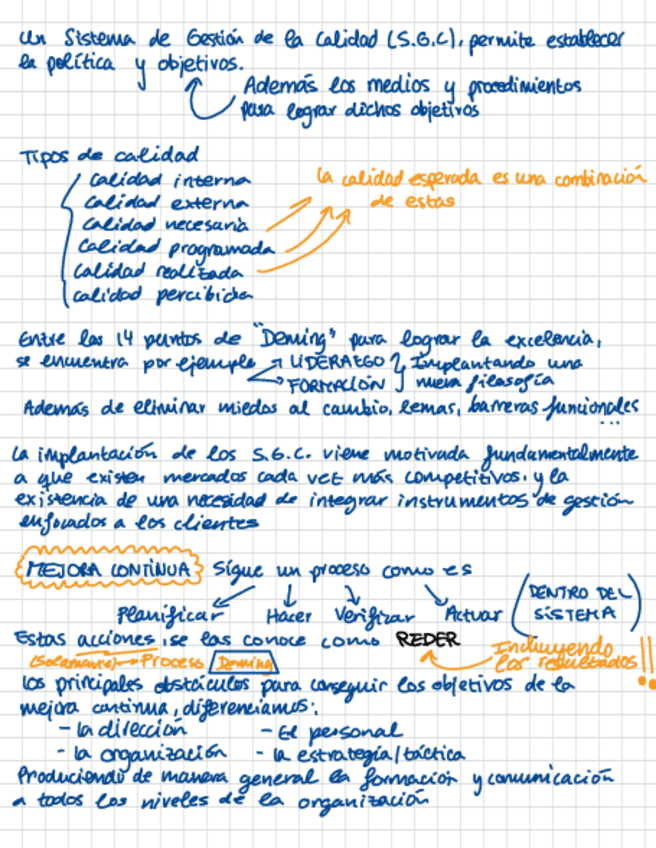 Un Sistema de Gestión de la Calidad (S.G.C), permite establecer
la política y objetivos.
Además los medios y procedimientos
para lograr dichos objetivos
Tipos de calidad
Calidad interna
Calidad externa
Calidad necesaria
Calidad programada
Calidad realizada
Calidad percibida
la calidad esperada es una combinación
de estas
Entre los 14 puntos de "Deming" para lograr la excelencia,
se encuentra por ejemplo → LIDERAZGO } Implantando una
→ FORMACIÓN } nueva filosofía
Además de eliminar miedos al cambio, lemas, barreras funcionales
...
La implantación de los S.G.C. viene motivada fundamentalmente
a que existen mercados cada vez más competitivos, y la
existencia de una necesidad de integrar instrumentos de gestión
enfocados a los clientes
MEJORA CONTINUA Sigue un proceso como es
Planificar Hacer Verifizar Actuar (DENTRO DEL
SISTEMA)
Estas acciones, se las conoce como REDER
Incluyendo
los resultados!!
(Solamente) → Proceso Deming
Los principales obstáculos para conseguir los objetivos de la
mejora continua, diferenciamos:
- la dirección - El personal
- la organización - la estrategia/táctica
Produciendo de manera general la formación y comunicación
a todos los niveles de la organización